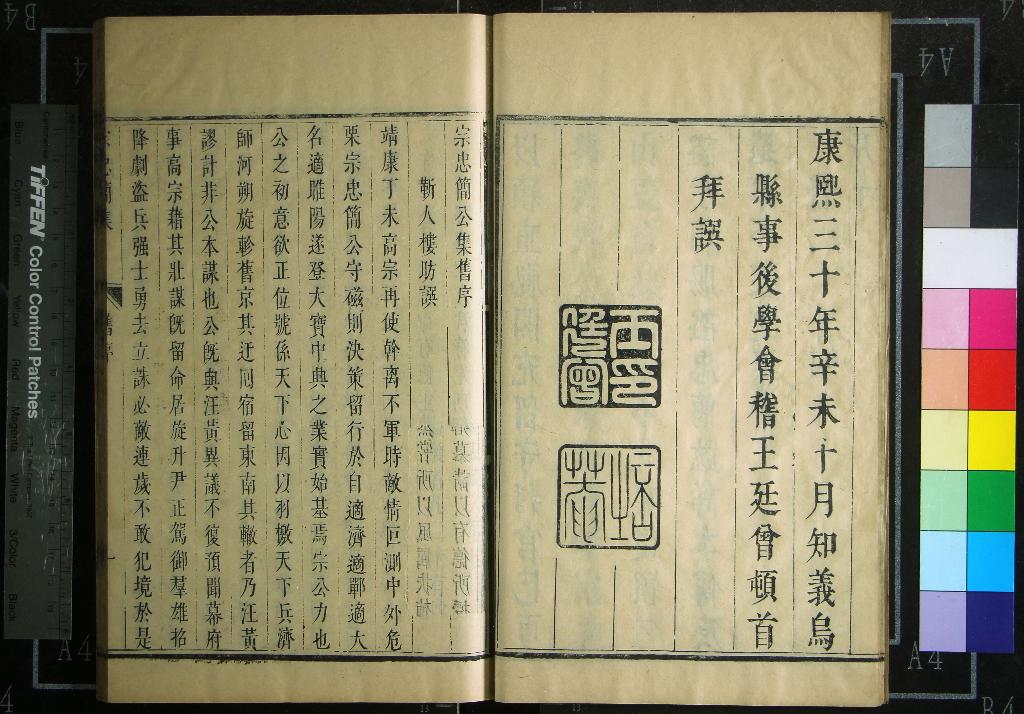 康熙三十年辛未十月知義烏
縣事後學會稽王廷曾頓首
拜譔
宗忠簡公集舊序
靳人樓昉譔
靖康丁未高宗再使幹离不軍時敵情叵測中外危
栗宗忠簡公守磁則決策留行於自適濟適鄆適大
名適睢陽遂登大寶中典之業實始基焉宗公力也
公之初意欲正位號係天下心因以羽檄天下兵濟
師河朔旋軫舊京其迂囘宿留東南其轍者乃汪黃
謬計非公本謀也公旣與汪黃異議不復預聞幕府
事高宗藉其壯謀旣留命居旋升尹正駕御羣雄招
降劇盜兵强士勇去立誅必敵連歲不敢犯境於是
舊序
一
TIFFEN Color Control Patches
Blue
Cyan
Green
Yellow
Red
Magenta
White
3/Color
Black
A4
A4
A4
B4